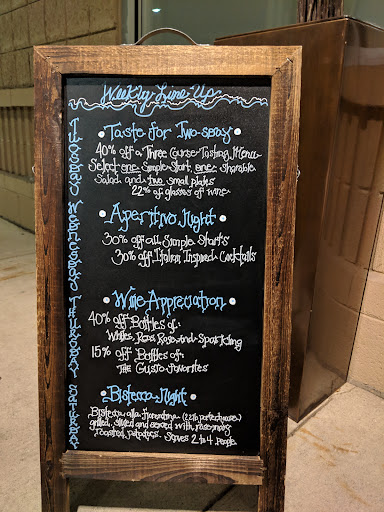 Weekly Line Up
TUESDAY
Taste for Two-sday
40% off a Three Course Tasting Menu
Select one Simple Start, one Sharable
Salad and two small plates
22% of glasses of wine
WEDNESDAY
Aperitivo Night
30% off all Simple Starts
30% off Italian Inspired Cocktails
THURSDAY
Wine Appreciation
40% off Bottles of:
Whites, Reds, Rose, and Sparkling
15% off Bottles of:
THE GUSTO FAVORITES
SATURDAY
Bistecca Night
Bistecca alla fiorentina (22oz porterhouse)
grilled, sliced and served with rosemary
roasted potatoes. Serves 2 to 4 people.